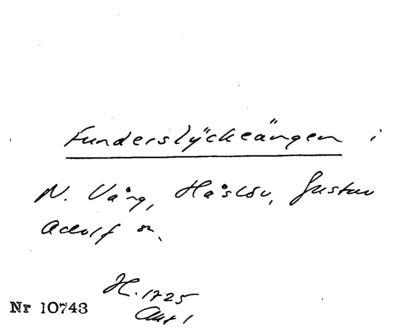 Funderslyckeängen i
N. Vång, Håslöv, Gustav
Adolf sn.
H. 1725
Akt 1
Nr 10743